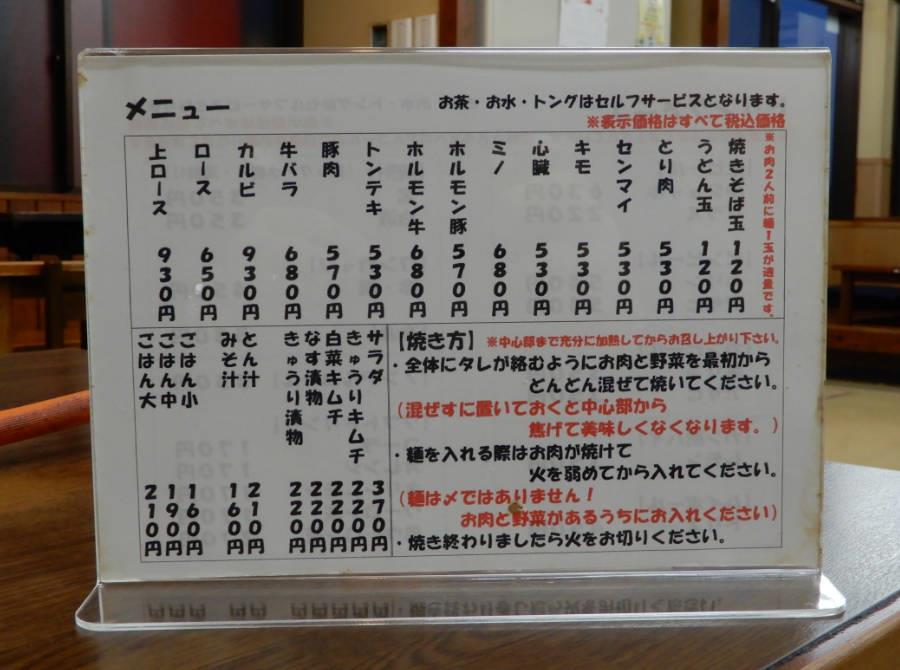 メニュー
お茶・お水・トングはセルフサービスとなります。
※表示価格はすべて税込価格
※お肉2人前に麺1玉が適量です。
焼きそば玉 120円
うどん玉 120円
とり肉 530円
センマイ 530円
キモ 530円
心臓 530円
ミノ 680円
ホルモン豚 570円
ホルモン牛 680円
トンテキ 530円
豚肉 570円
牛バラ 680円
カルビ 930円
ロース 650円
上ロース 930円
【焼き方】※中心部まで充分に加熱してからお召し上がり下さい。
・全体にタレが絡むようにお肉と野菜を最初から
どんどん混ぜて焼いてください。
(混ぜすに置いておくと中心部から
焦げて美味しくなくなります。)
・麺を入れる際はお肉が焼けて
火を弱めてから入れてください。
(麺は〆ではありません!
お肉と野菜があるうちにお入れください)
・焼き終わりましたら火をお切りください。
サラダ 370円
きゅうりキムチ 220円
白菜キムチ 220円
なす漬物 220円
きゅうり漬物 220円
とん汁 210円
みそ汁 160円
ごはん小 160円
ごはん中 190円
ごはん大 210円